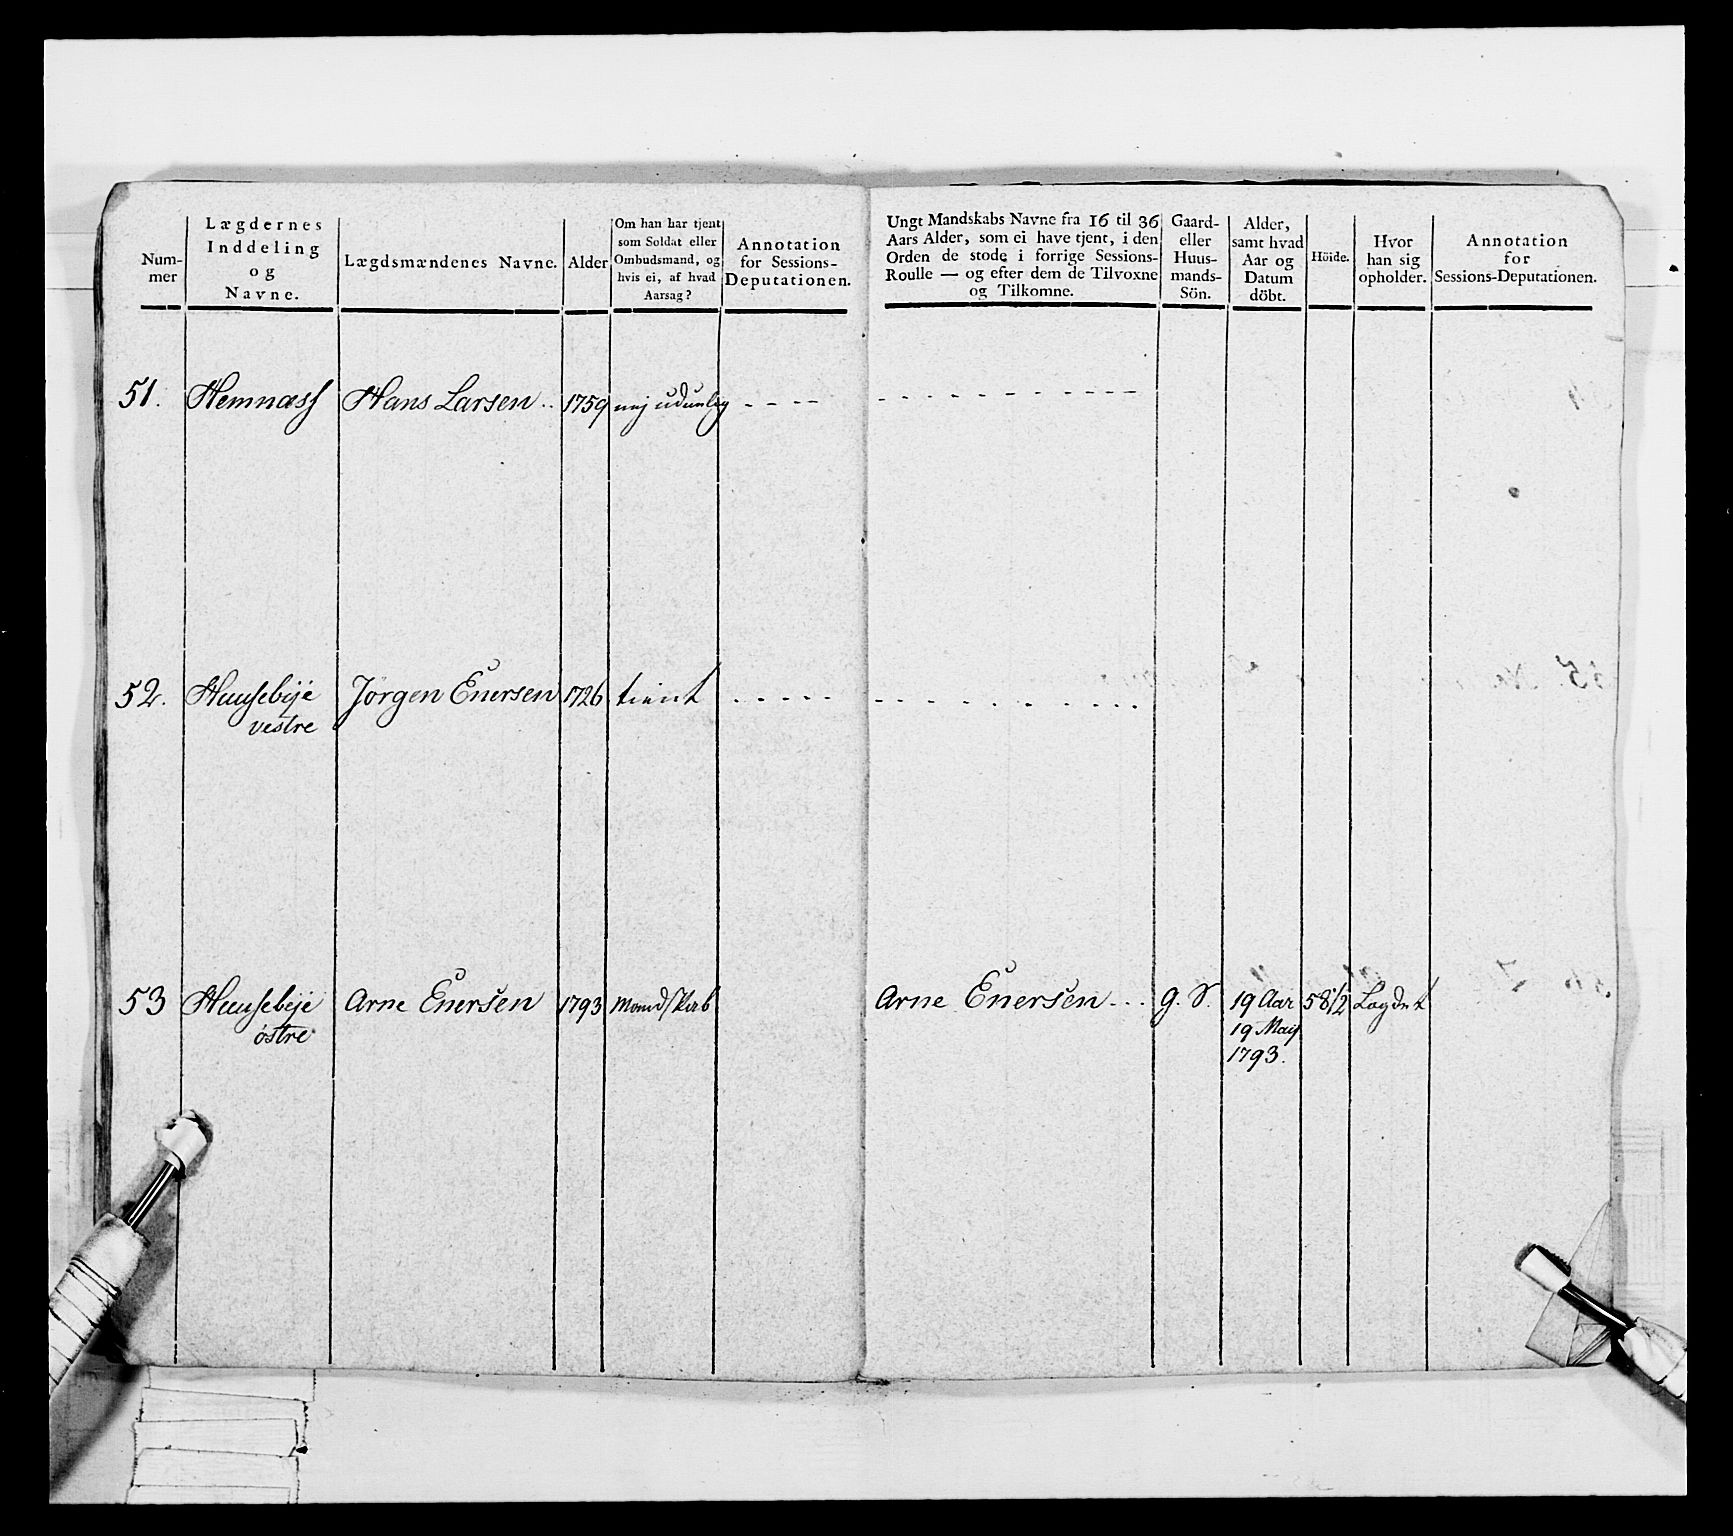 Num-
mer
Lægdernes
Inddeling
og
Navne.
Lægdsmændenes Navne.
Alder
Om han har tjent
som Soldat eller
Ombudsmand, og
hvis ei, af hvad
Aarsag?
Annotation
for Sessions-
Deputationen.
Ungt Mandskabs Navne fra 16 til 36
Aars Alder, som ei have tjent, i den
Orden de stode i forrige Sessions-
Roulle — og efter dem de Tilvoxne
og Tilkomne.
Gaard-
eller
Huus-
mands-
Sön.
Alder,
samt hvad
Aar og
Datum
döbt.
Höide.
Hvor
han sig
opholder.
Annotation
for
Sessions-Deputationen.
51. Hemnæss Hans Larsen .. 1759 nej - - - -
52. Huusebÿe Jørgen Enersen 1726 tient - - - - -
vestre
53 Huusebÿe Arne Enersen 1793 Mandskab Arne Enersen - - - g. S. 19 Aar 58 1/2 Lagdet
østre 19 Maij
1793.